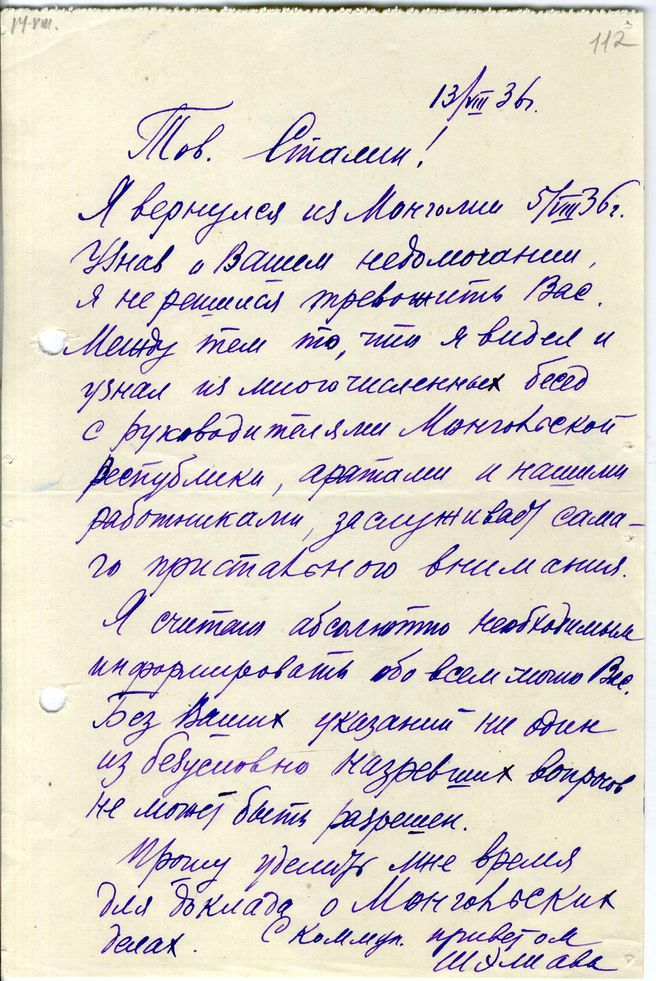 14.VIII.
112
13/VIII 36г.
Тов. Сталин!
Я вернулся из Монголии 5/VIII 36г.
Узнав о Вашем недомогании,
я не решился тревожить Вас.
Между тем то, что я видел и
узнал из многочисленных бесед
с руководителями Монгольской
республики, аратами и нашими
работниками, заслуживает само-
го пристального внимания.
Я считаю абсолютно необходимым
информировать обо всем этом Вас.
Без Ваших указаний ни один
из безусловно назревших вопросов
не может быть разрешен.
Прошу уделить мне время
для доклада о Монгольских
делах. С коммун. приветом